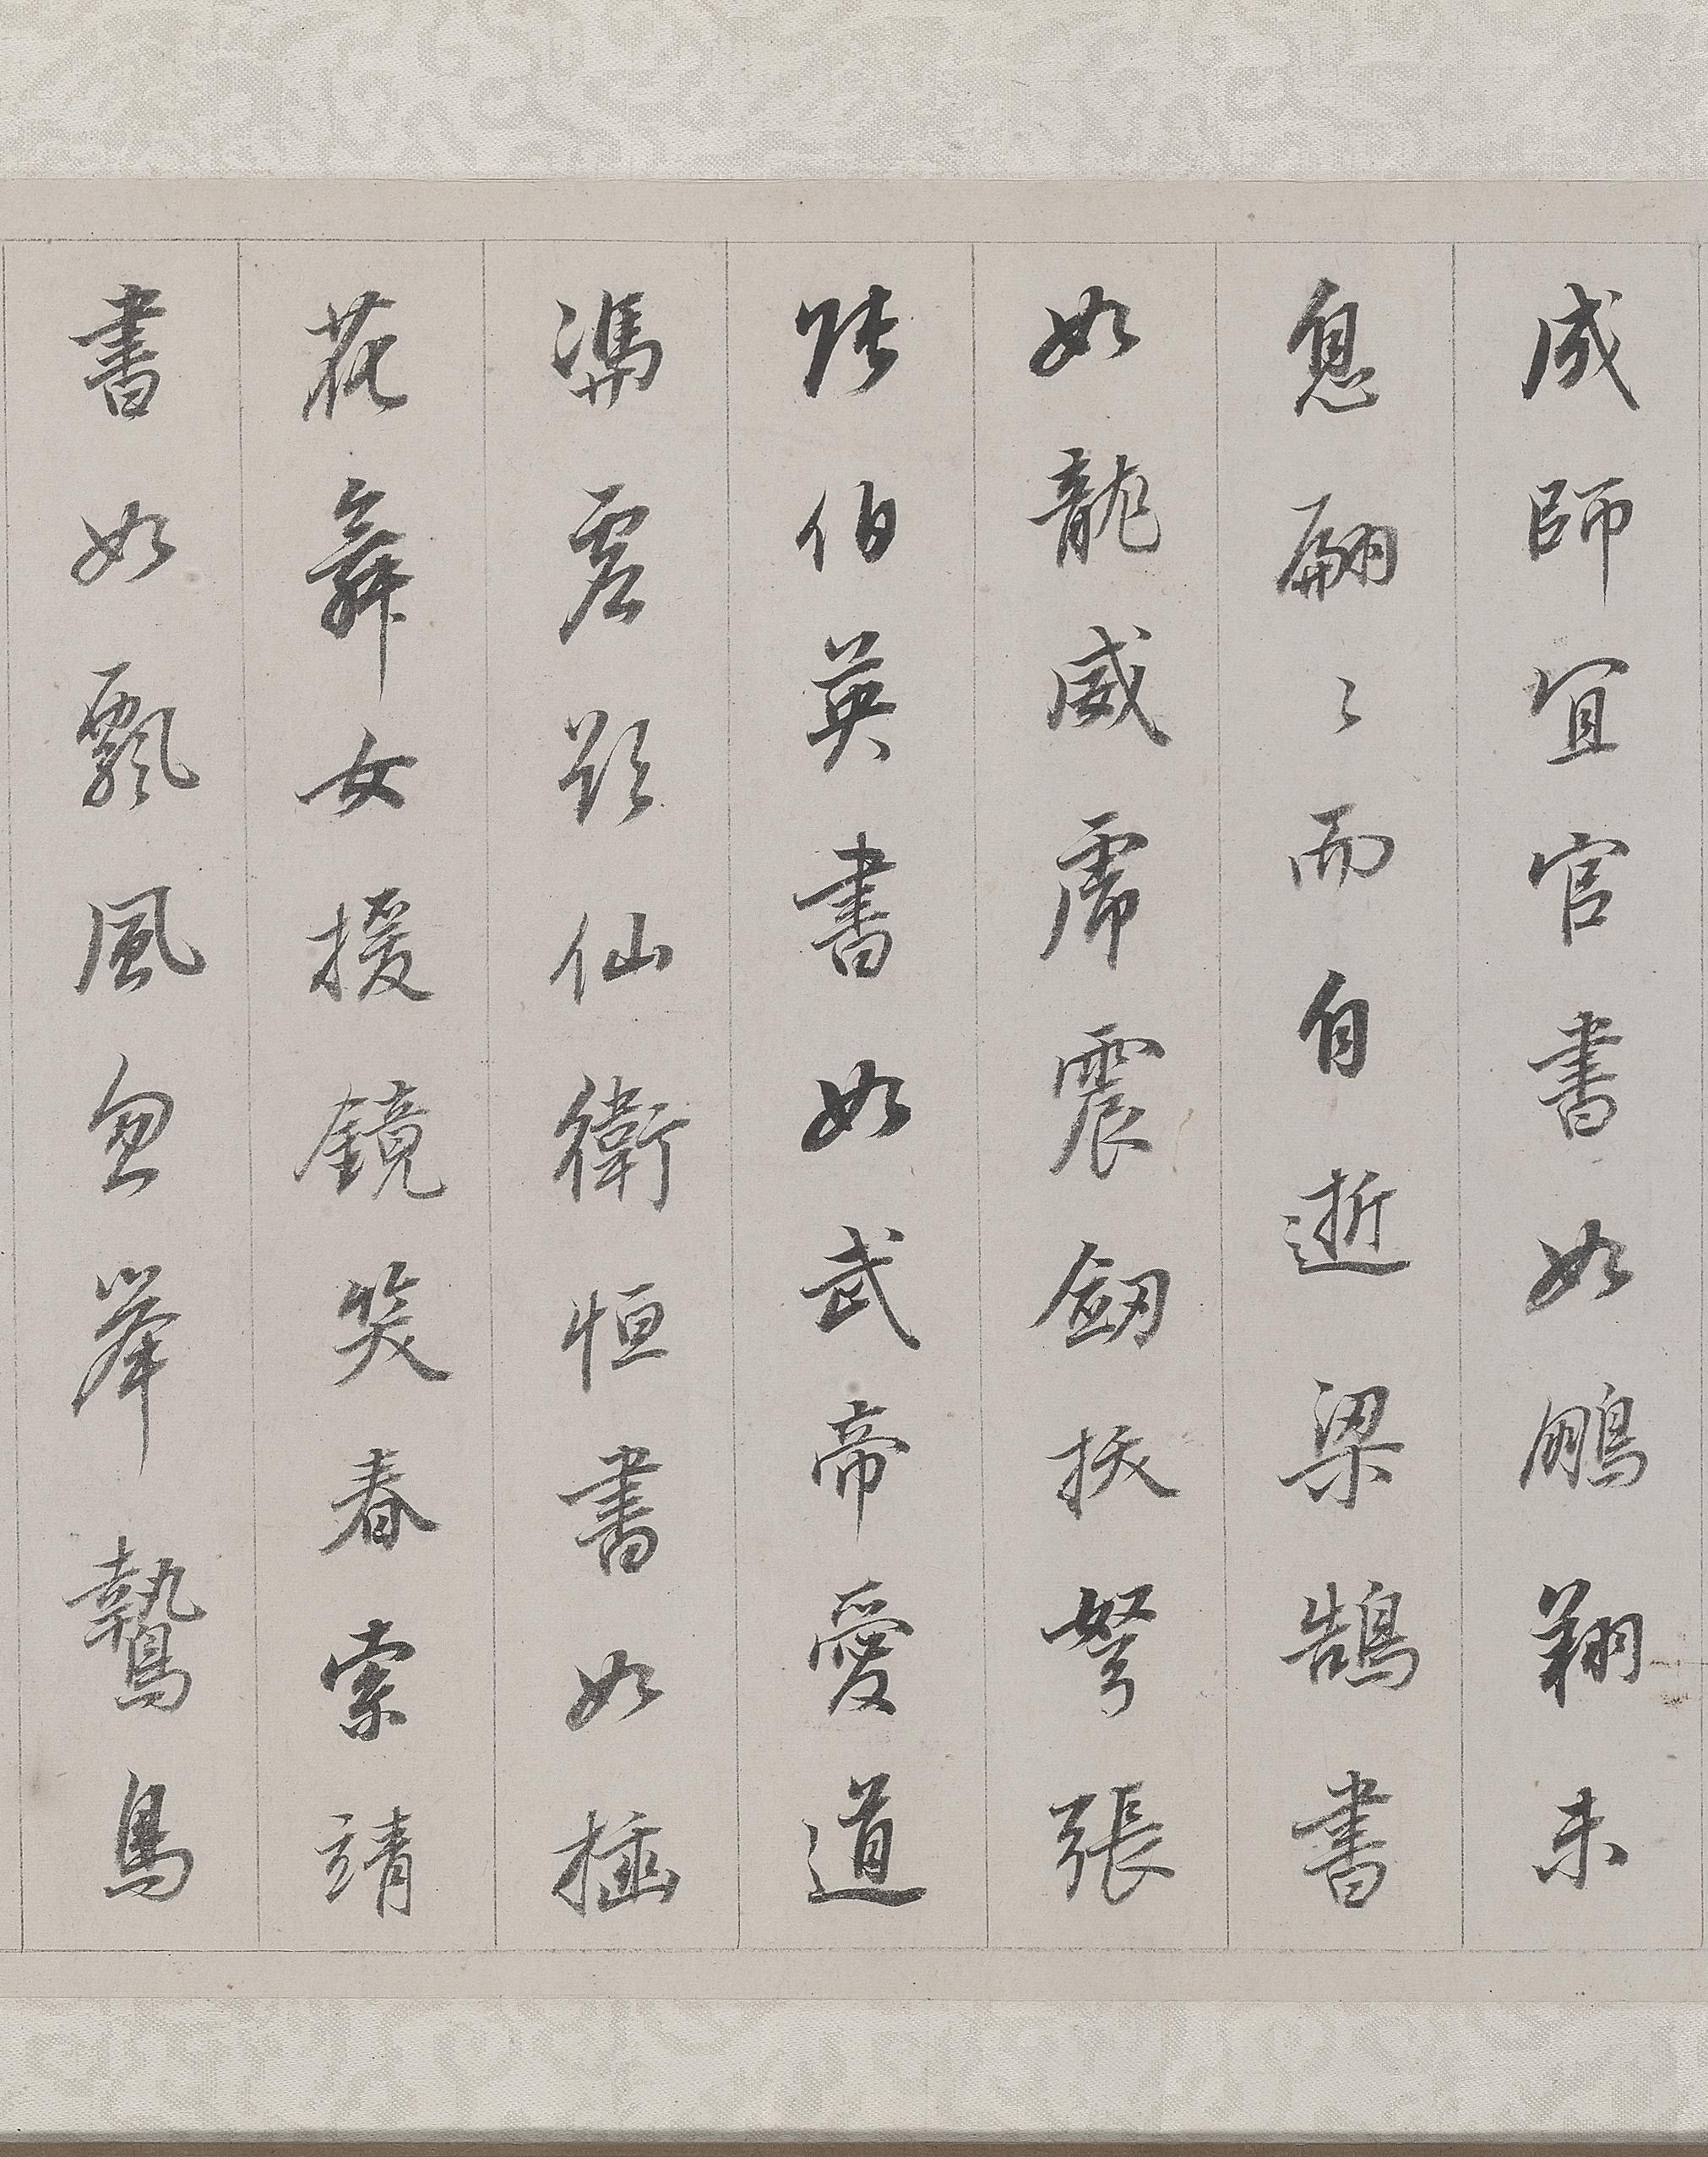 成師宜官書如鵬翔未
息翩〻而自逝梁鵠書
如龍威虎震劒拔弩張
張伯英書如武帝愛道
馮虚欲仙衛恒書如插
花舞女援鏡笑春索靖
書如飄風忽舉鷙鳥